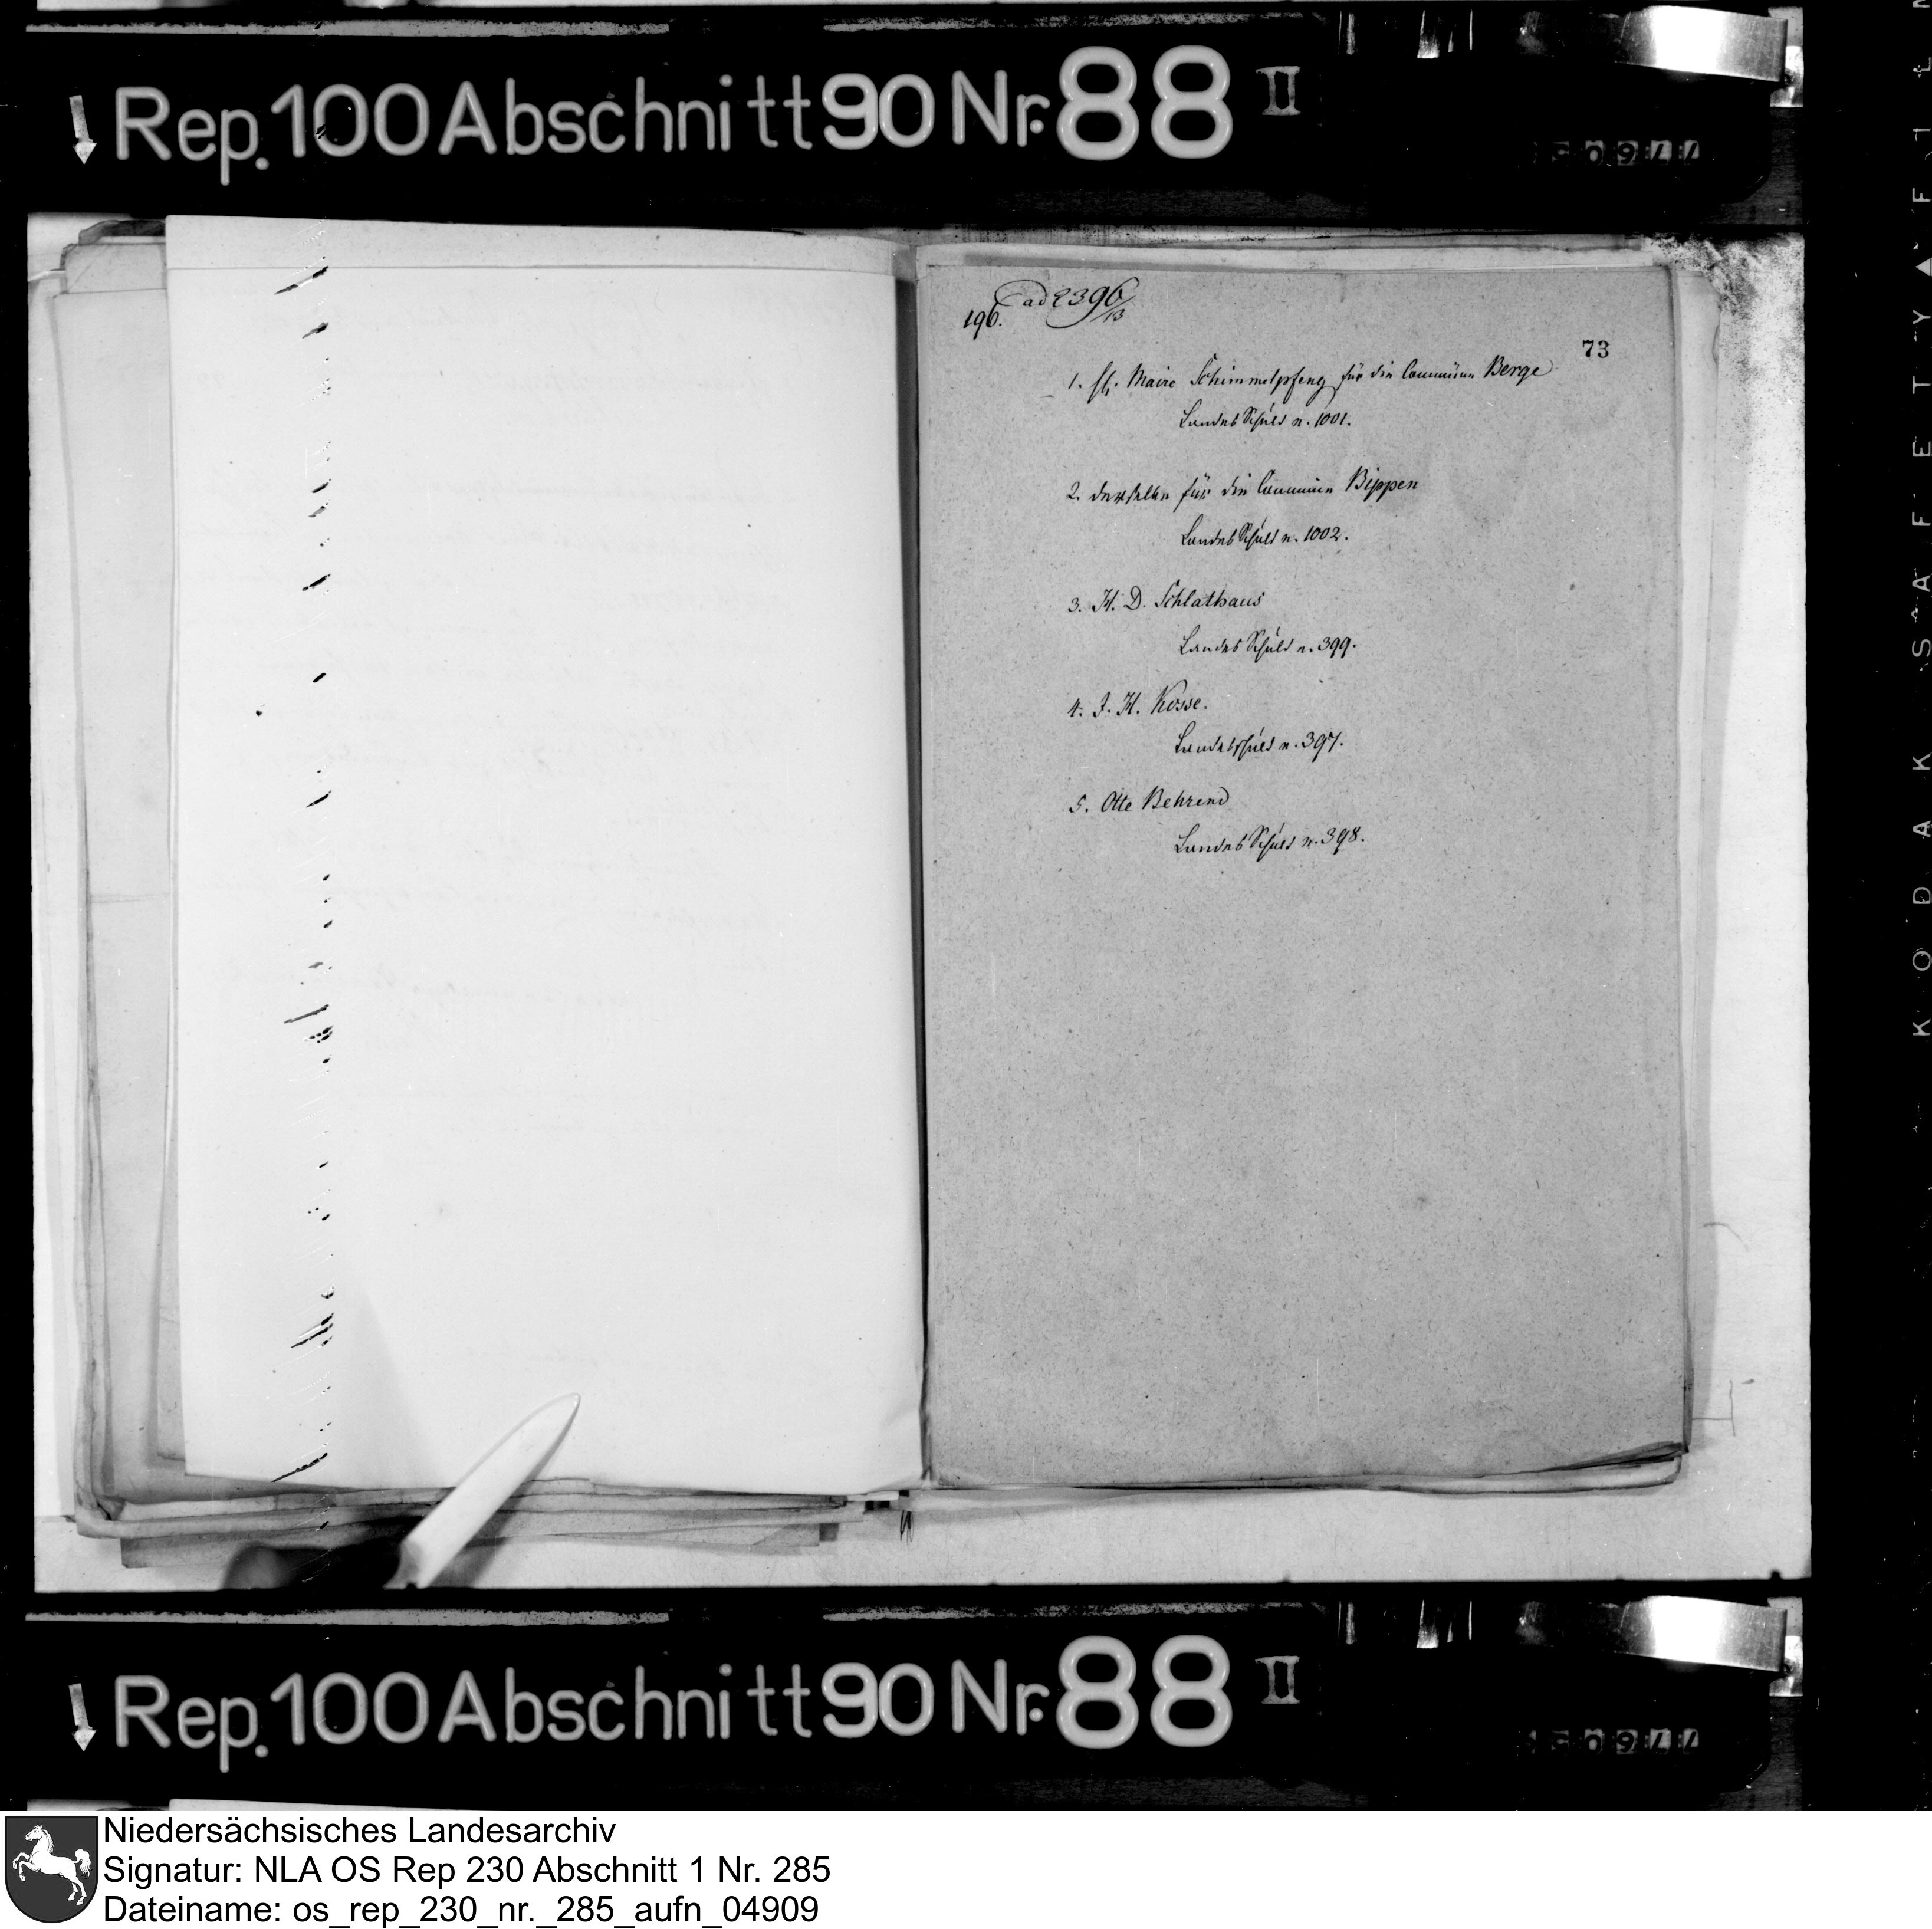 Rep. 100 Abschnitt 90 Nr. 88 II
ad 2396/13
196.
73
1. H. Maire Schimmelpfeng für die Commün Berge
Landes Schuld n. 1001.
2. derselbe für die Commün Bippen
Landes Schuld n. 1002.
3. H. D. Schlathaus
Landes Schuld n. 399.
4. J. H. Kosse.
Landesschuld n. 397.
5. Otte Behrend
Landes Schuld n. 398.
KODAK SAFETY FILM
Rep. 100 Abschnitt 90 Nr. 88 II
Niedersächsisches Landesarchiv
Signatur: NLA OS Rep 230 Abschnitt 1 Nr. 285
Dateiname: os_rep_230_nr._285_aufn_04909